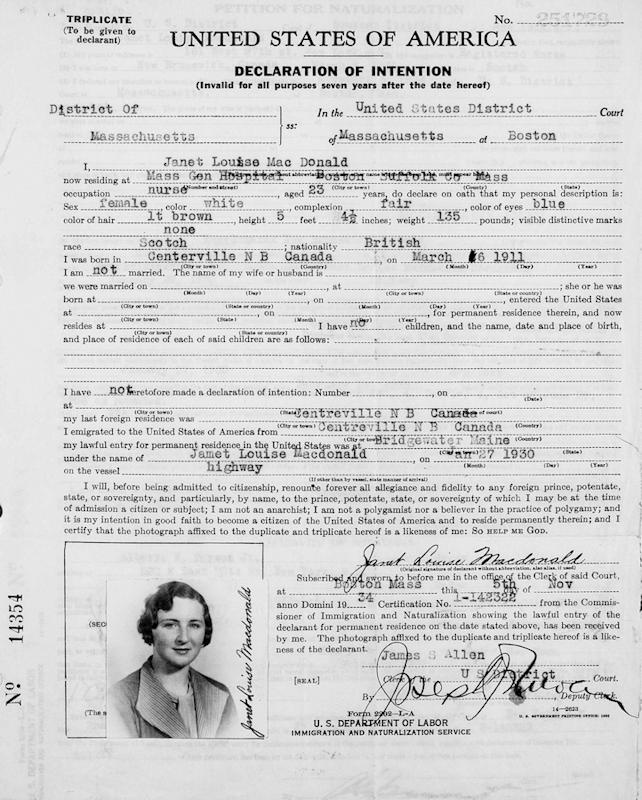 TRIPLICATE
(To be given to
declarant)
No. 251729
UNITED STATES OF AMERICA
DECLARATION OF INTENTION
(Invalid for all purposes seven years after the date hereof)
District Of
Massachusetts
ss:
In the United States District Court
of Massachusetts at Boston
I, Janet Louise Mac Donald
now residing at Mass Gen Hospital Boston Suffolk Co Mass
occupation nurse, aged 23 years, do declare on oath that my personal description is:
Sex female, color white, complexion fair, color of eyes blue
color of hair lt brown, height 5 feet 4½ inches; weight 135 pounds; visible distinctive marks
none
race Scotch; nationality British
I was born in Centerville N B Canada, on March 6 1911
(City or town) (Country) (Month) (Day) (Year)
I am not married. The name of my wife or husband is
we were married on, at; she or he was
(Month) (Day) (Year) (City or town) (State or country)
born at, on, entered the United States
(City or town) (State or country) (Month) (Day) (Year)
at, on, for permanent residence therein, and now
(City or town) (State) (Month) (Day) (Year)
resides at I have no children, and the name, date and place of birth,
(City or town) (State or country)
and place of residence of each of said children are as follows:
I have not heretofore made a declaration of intention: Number, on
(Date)
at
(City or town)
my last foreign residence was Centreville N B Canada
I emigrated to the United States of America from Centreville N B Canada
(City or town) (Country)
my lawful entry for permanent residence in the United States was at Bridgewater Maine
under the name of Janet Louise Macdonald, on Jan 27 1930
(Month) (Day) (Year)
on the vessel highway
(If other than by vessel, state manner of arrival)
I will, before being admitted to citizenship, renounce forever all allegiance and fidelity to any foreign prince, potentate,
state, or sovereignty, and particularly, by name, to the prince, potentate, state, or sovereignty of which I may be at the time
of admission a citizen or subject; I am not an anarchist; I am not a polygamist nor a believer in the practice of polygamy; and
it is my intention in good faith to become a citizen of the United States of America and to reside permanently therein; and I
certify that the photograph affixed to the duplicate and triplicate hereof is a likeness of me: So HELP ME GOD.
Janet Louise Macdonald
(Original signature of declarant without abbreviation, also alias, if used)
Subscribed and sworn to before me in the office of the Clerk of said Court,
at Boston Mass this 5th day of Nov
anno Domini 19 34 Certification No. 1-142322 from the Commis-
sioner of Immigration and Naturalization showing the lawful entry of the
declarant for permanent residence on the date stated above, has been received
by me. The photograph affixed to the duplicate and triplicate hereof is a like-
ness of the declarant.
James S Allen
[SEAL]
Clerk of the U S District Court.
By Deputy Clerk.
Form 2202-L-A
U. S. DEPARTMENT OF LABOR
IMMIGRATION AND NATURALIZATION SERVICE
14-2623
U. S. GOVERNMENT PRINTING OFFICE
Janet Louise Macdonald
No 14354